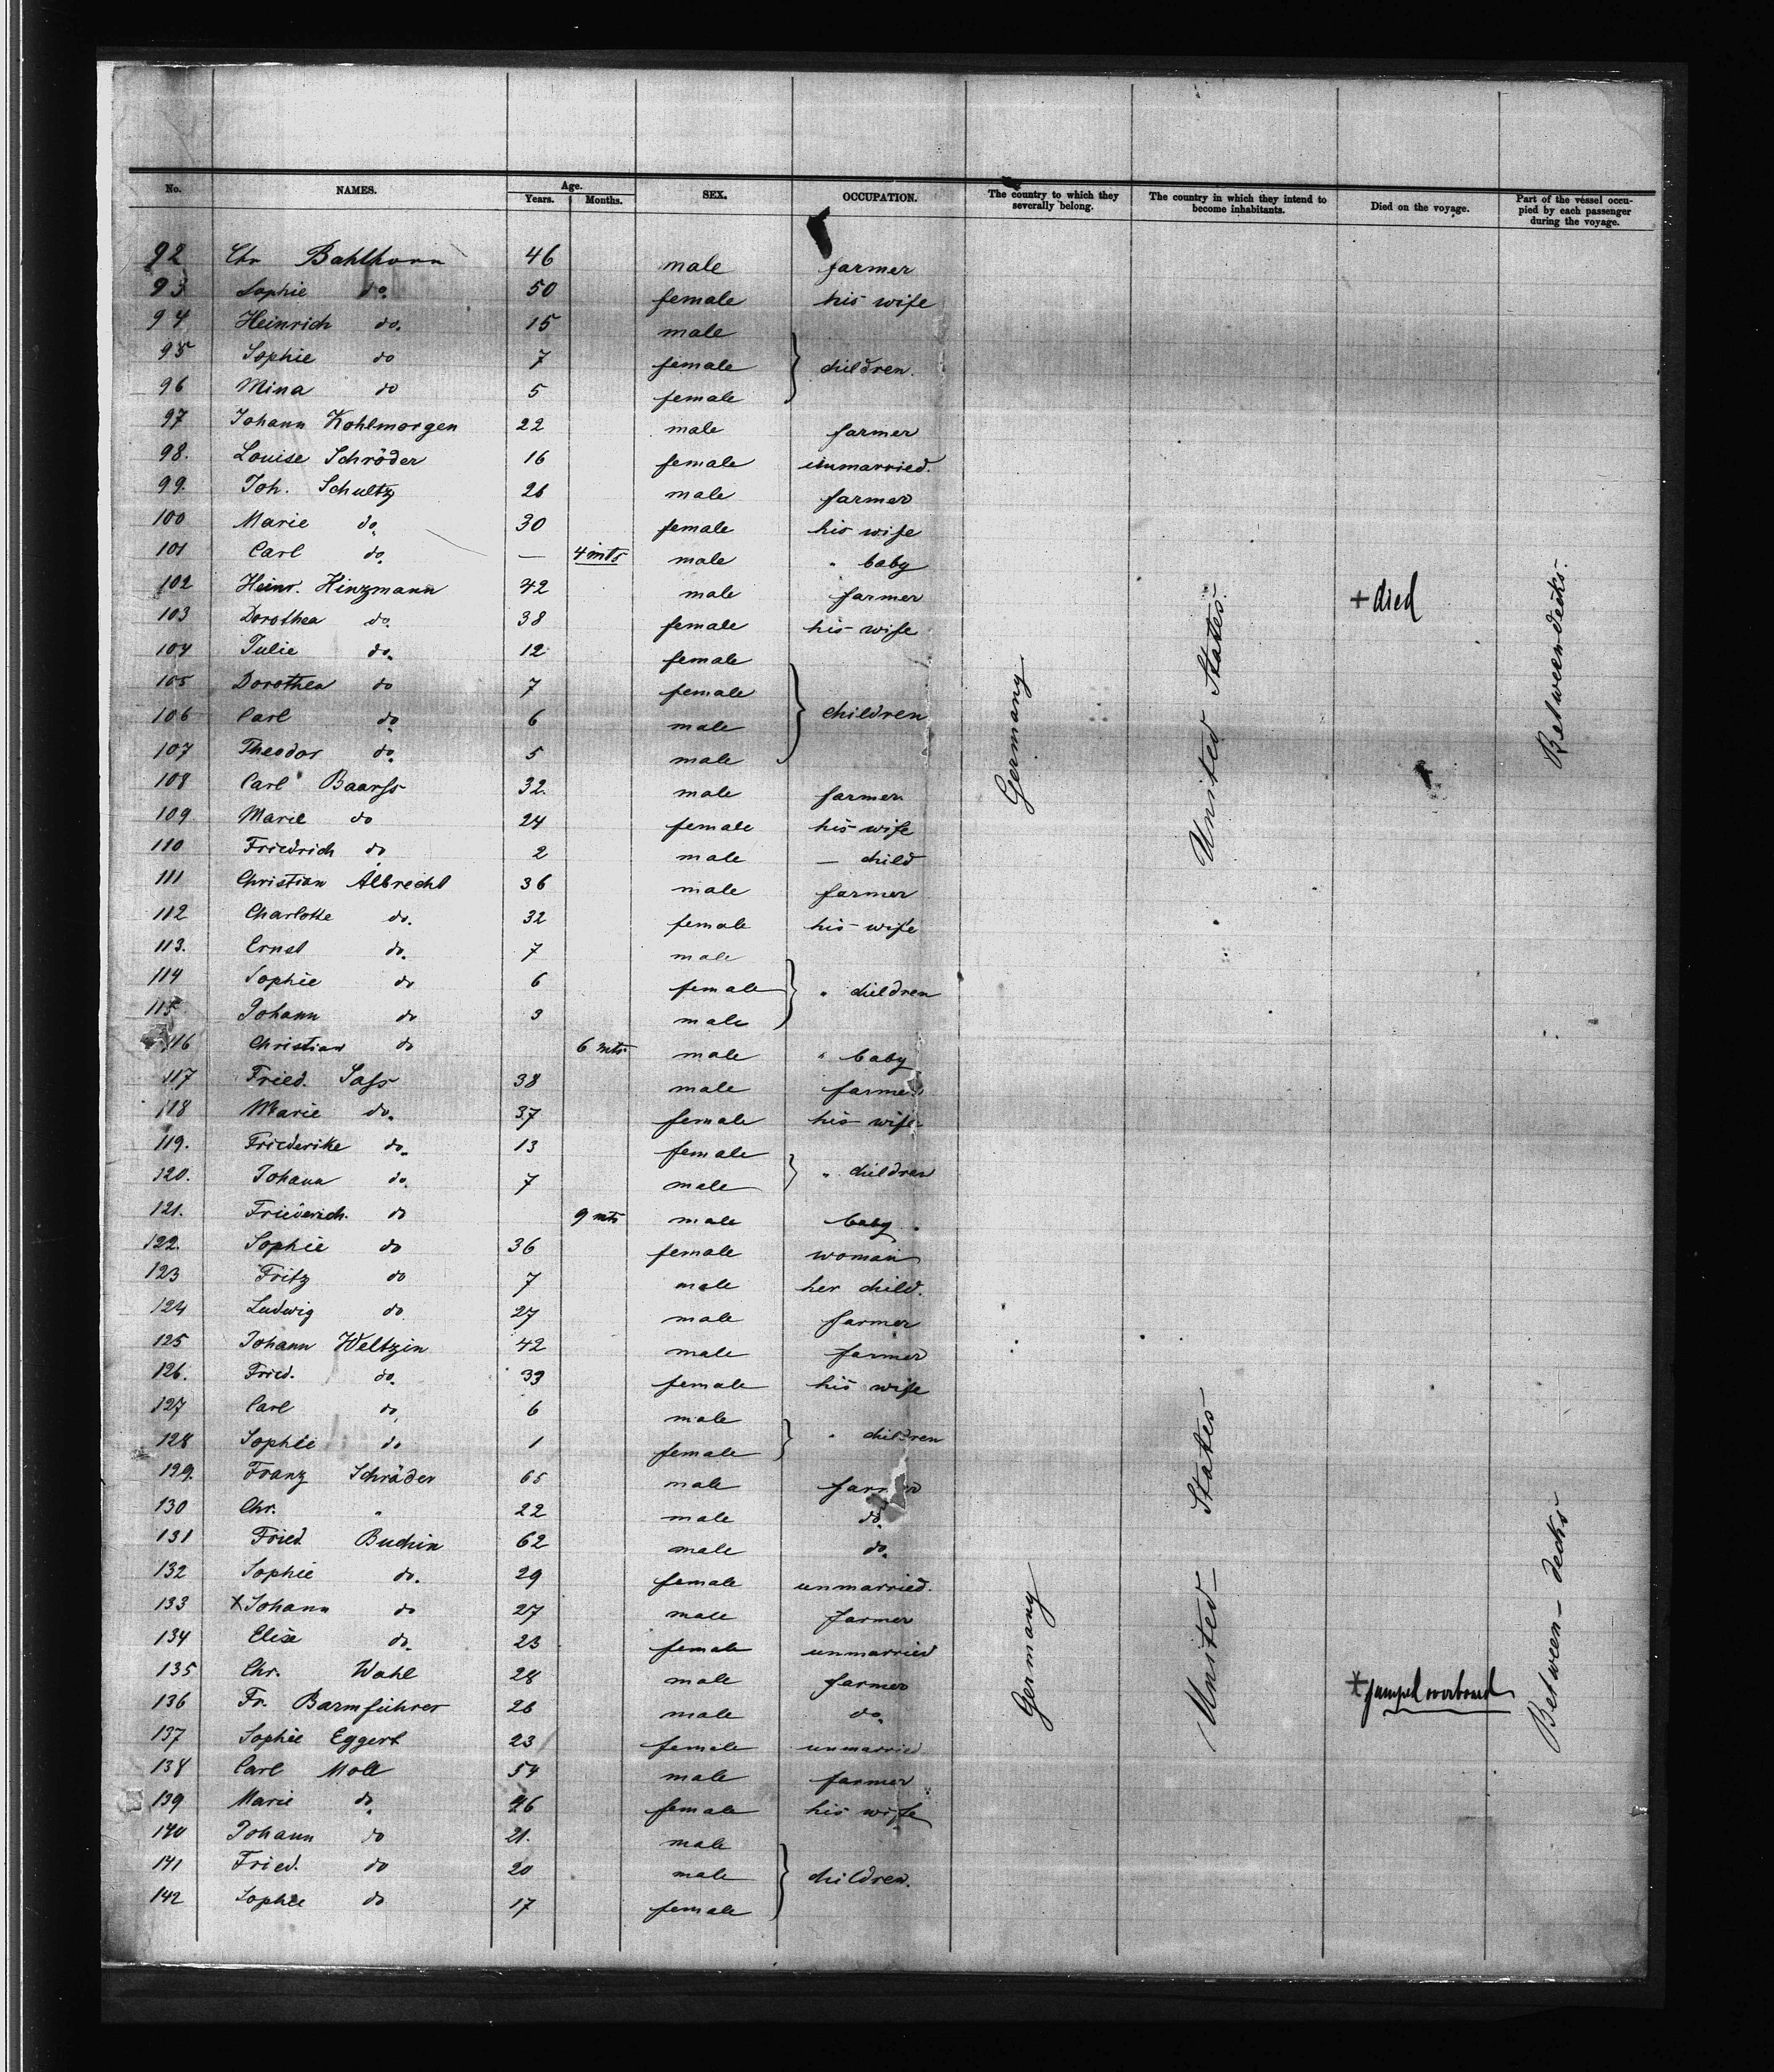 No. NAMES. Age. Years. Months. SEX. OCCUPATION. The country to which they severally belong. The country in which they intend to become inhabitants. Died on the voyage. Part of the vessel occupied by each passenger during the voyage.
92 Chr Bahlhorn 46 male farmer
93 Sophie do. 50 female his wife
94 Heinrich do. 15 male
95 Sophie do 7 female children.
96 Mina do 5 female
97 Johann Kohlmorgen 22 male farmer
98. Louise Schröder 16 female unmarried.
99. Joh. Schultz 26 male farmer
100 Marie do. 30 female his wife
101 Carl do. — 4 mts male " baby
102 Heinr. Hinzmann 42 male farmer + died
103 Dorothea do. 38 female his wife
104 Julie do. 12 female
105 Dorothea do 7 female
106 Carl do. 6 male children
107 Theodor do. 5 male
Germany United States. Between decks.
108 Carl Baarss 32. male farmer.
109 Marie do 24 female his wife
110 Friedrich do. 2 male — child
111 Christian Albrecht 36 male farmer
112 Charlotte do. 32 female his wife
113. Ernst do. 7 male
114 Sophie do 6 female " children
115 Johann do 3 male
116 Christian do 6 mts male " baby
117 Fried. Sass 38 male farmer
118 Marie do. 37 female his wife
119. Friederike do. 13 female
120. Johann do. 7 male " children
121. Friederich. do 9 mts male baby
122. Sophie do 36 female woman
123 Fritz do 7 male her child.
124 Ludwig do 27 male farmer
125 Johann Weltzin 42 male farmer
126. Fried. do. 39 female his wife
127 Carl do. 6 male
128 Sophie do 1 female " children
129. Franz Schröder 65 male farmer
130 Chr. " 22 male do.
131 Fried. Buchin 62 male do.
132 Sophie do. 29 female unmarried.
133 x Johann do 27 male farmer
134 Elise do. 23 female unmarried
Germany United States Between decks
135 Chr. Wahl 28 male farmer x jumped overboard
136 Fr. Barmführer 26 male do.
137 Sophie Eggert 23 female unmarried
138 Carl Moll 54 male farmer
139 Marie do. 46 female his wife
140 Johann do 21. male
141 Fried. do 20 male children.
142 Sophie do 17 female